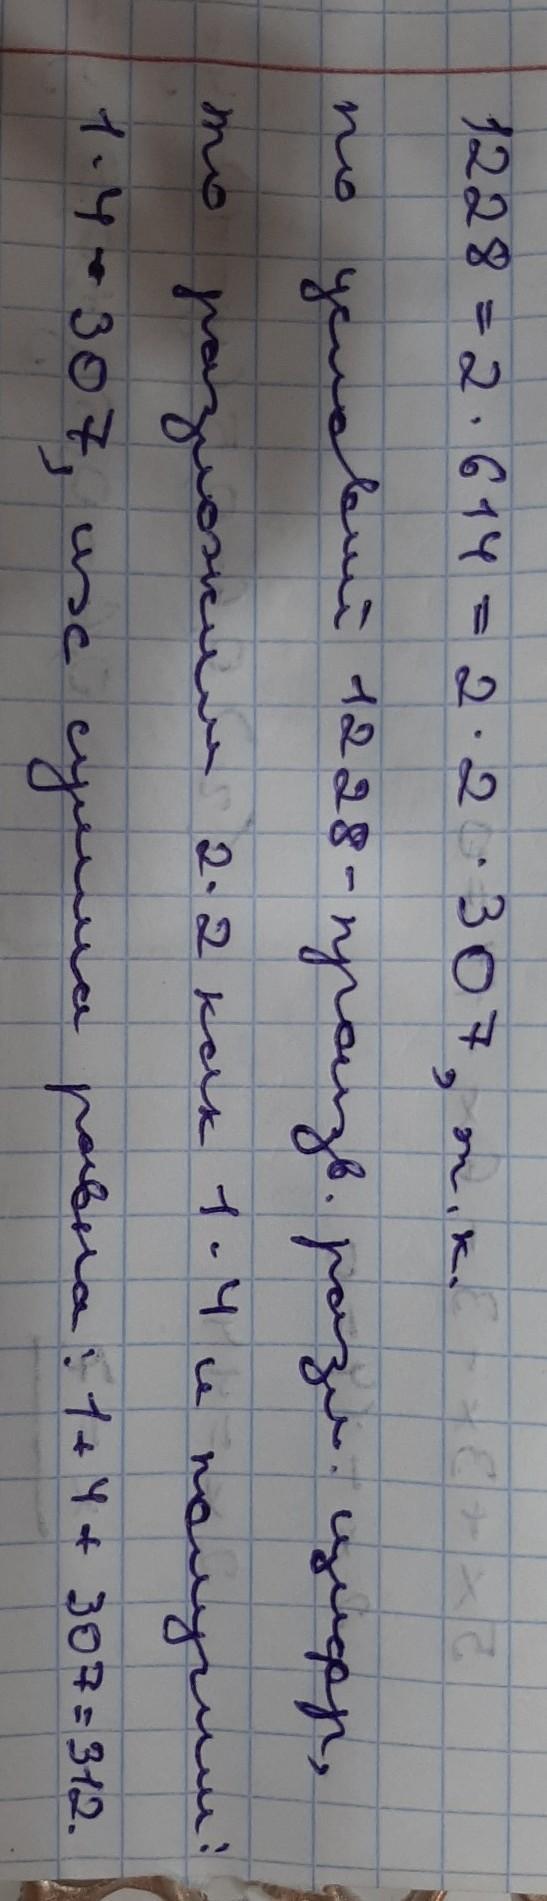 1228 = 2 · 614 = 2 · 2 · 307, т. к.
по условий 1228 - произв. разл. цифр,
то разложим 2 · 2 как 1 · 4 и получим:
1 · 4 · 307, их сумма равна: 1 + 4 + 307 = 312.